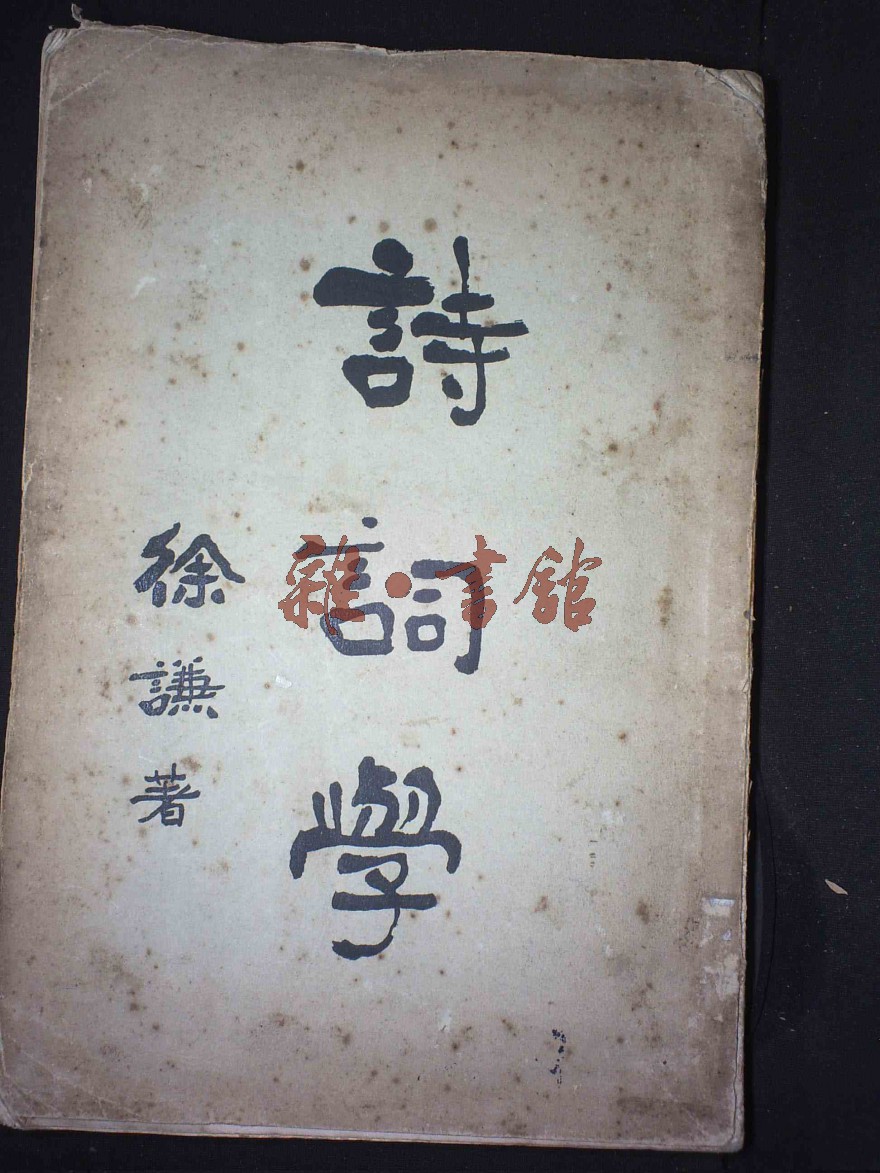 詩詞學
徐謙著
雜·書館